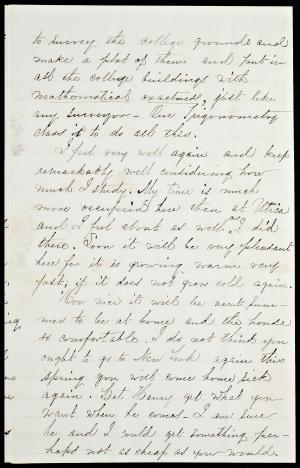 to survey the college grounds and
make a plot of them and put in
all the college buildings with
mathematical exactness, just like
any surveyor - Our Trigonometry
class is to do all this.
I feel very well again and keep
remarkably well considering how
much I study. My time is much
more occupied here than at Utica
and I feel about as well as I did
there. Soon it will be very pleasant
here for it is growing warm very
fast, if it does not grow cold again.
How nice it will be next sum-
mer to be at home and the house
so comfortable. I do not think you
ought to go to New York again this
spring you will come home sick
again. Let Henry get what you
want when he comes - I am sure
he and I could get something per-
haps not as cheap as you would.